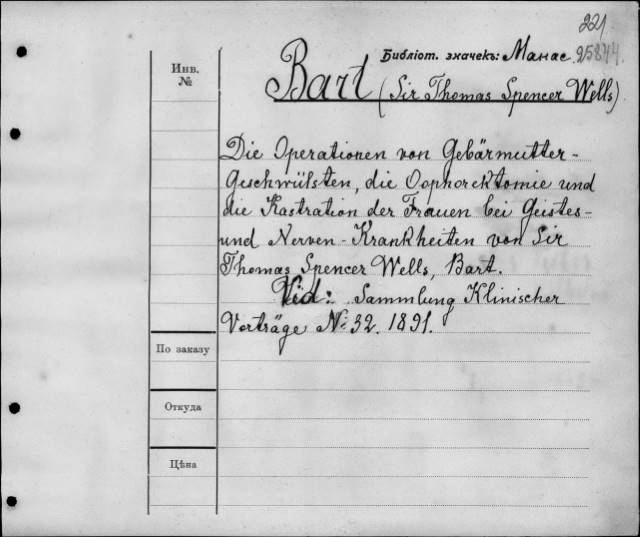 221
Библіот. значекъ: Манас. 25844.
Инв. №
Bart (Sir Thomas Spencer Wells)
Die Operationen von Gebärmutter-
Geschwülsten, die Oophorektomie und
die Kastration der Frauen bei Geistes-
und Nerven-Krankheiten von Sir
Thomas Spencer Wells, Bart.
Vid: Sammlung Klinischer
Vorträge №: 32. 1891.
По заказу
Откуда
Цѣна